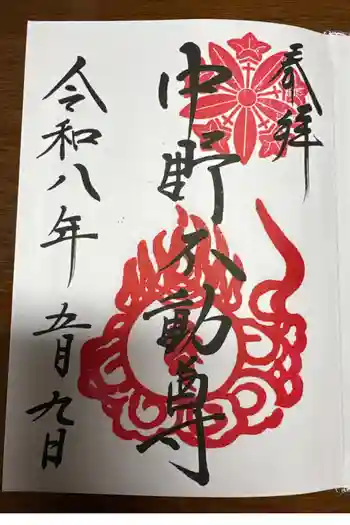 奉拝
中野不動尊
令和八年
五月九日